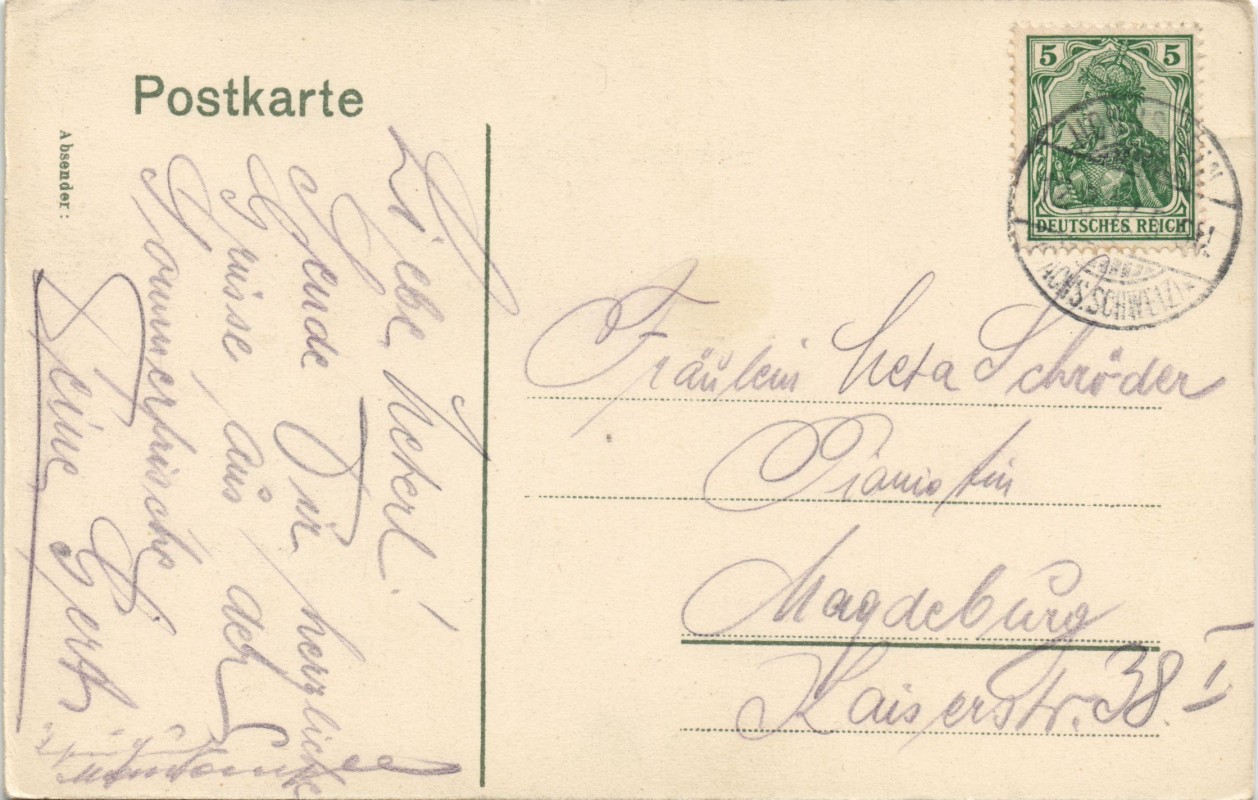 Postkarte
Absender:
Liebe Meterl!
Sende Dir herzlichste
Grüsse, aus der
Sommerfrische
Deine Gert
5 5
DEUTSCHES REICH
SCHWEIZ
Fräulein Meta Schröder
Pianistin
Magdeburg
Kaiserstr. 38. I